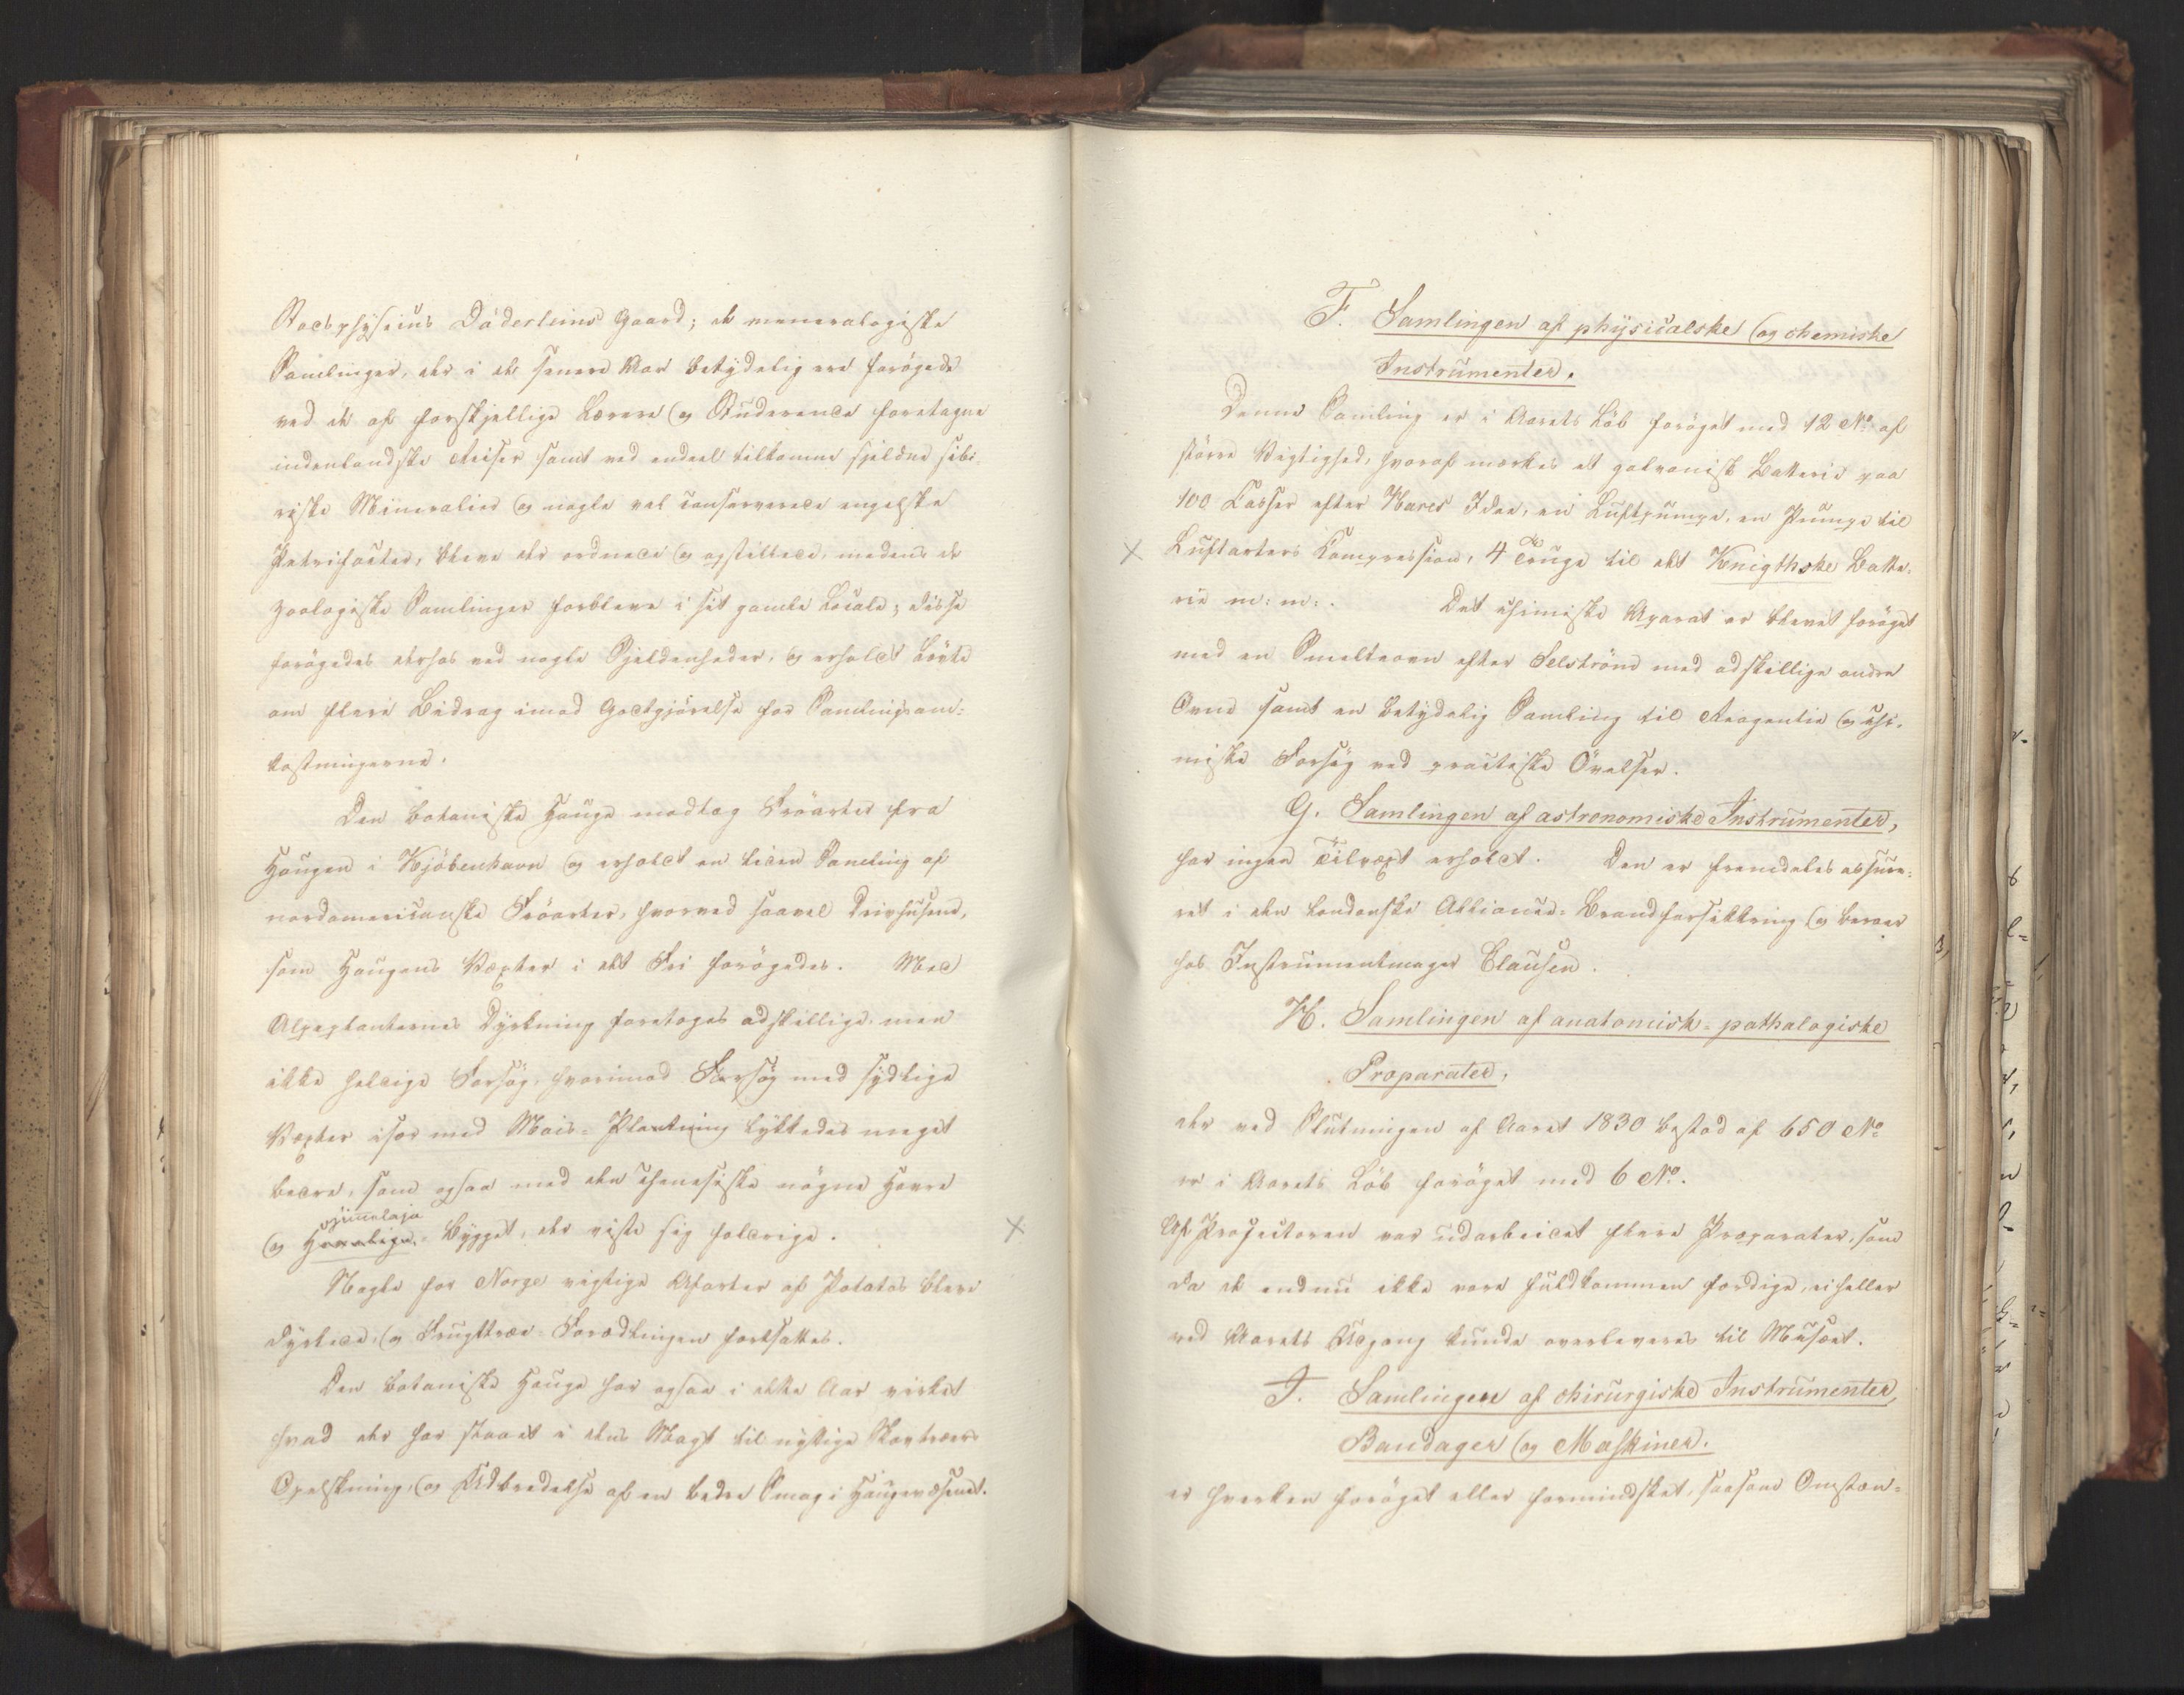 Stadsphysicus Döderleins Gaard; de mineralogiske
Samlinger, der i de senere Aar betydelig ere forøgede
ved de af forskjellige Lærere og Studerende foretagne
indenlandske Reiser samt ved endeel tilkomne sjeldne sibi-
riske Mineralier og nogle vel conserverede engelske
Petrifacter, bleve der ordnede og opstillede, medens de
zoologiske Samlinger forbleve i sit gamle Locale; disse
forøgedes derhos ved nogle Sjeldenheder, og erholdt Løvte
om flere Bidrag imod Godtgjørelse for Samlingsom-
kostningerne.
Den botaniske Hauge modtog Frøarter fra
Haugen i Kjöbenhavn og erholdt en liden Samling af
nordamericanske Frøarter, hvorved saavel Drivhusene,
som Haugens Væxter i det Fri forøgedes. Med
Alpeplanternes Dyrkning foretoges adskillige, men
ikke heldige Forsøg, hvorimod Forsøg med sydlige
Væxter især med Mais-Plantning lykkedes meget
bedre, som ogsaa med den chinesiske nøgne Havre
og Himalaja Bygget, der viste sig holdrige.
Nogle for Norge vigtige Afarter af Potatos bleve
dyrkede, og Frugttræe-Forædlingen fortsattes.
Den botaniske Hauge har ogsaa i dette Aar virket
hvad der har staaet i dens Magt til nyttige Skovtræers
Opelskning, og Udbredelse af en bedre Smag i Haugevæsenet.
F. Samlingen af physicalske og chemiske
Instrumenter.
Denne Samling er i Aarets Løb forøget med 12 No af
større Vigtighed, hvoraf mærkes et galvanisk Batterie paa
100 Kasser efter Hares Idee, en Luftpumpe, en Pumpe til
× Luftarters Kompression, 4 Truge til det Knigthske Batte-
rie m: m:. Det chemiske Aparat er blevet forøget
med en Smelteovn efter Selström med adskillige andre
Ovne samt en betydelig Samling til Reagentier og che-
miske Forsøg ved practiske Øvelser.
G. Samlingen af astronomiske Instrumenter,
har ingen Tilvæxt erholdt. Den er fremdeles assure-
ret i den londonske Alliance-Brandforsikkring og beroer
hos Instrumentmager Clausen.
H. Samlingen af anatomisk-pathalogiske
Præparater,
der ved Slutningen af Aaret 1830 bestod af 650 No
er i Aarets Løb forøget med 6 No.
Af Prosectoren var udarbeidet flere Præparater, som
da de endnu ikke vare fuldkommen færdige, ei heller
ved Aarets Udgang kunde overleveres til Musæet.
I. Samlingen af chirurgiske Instrumenter,
Bandager og Maskiner.
er hverken forøget eller formindsket, saasom Omstæn-